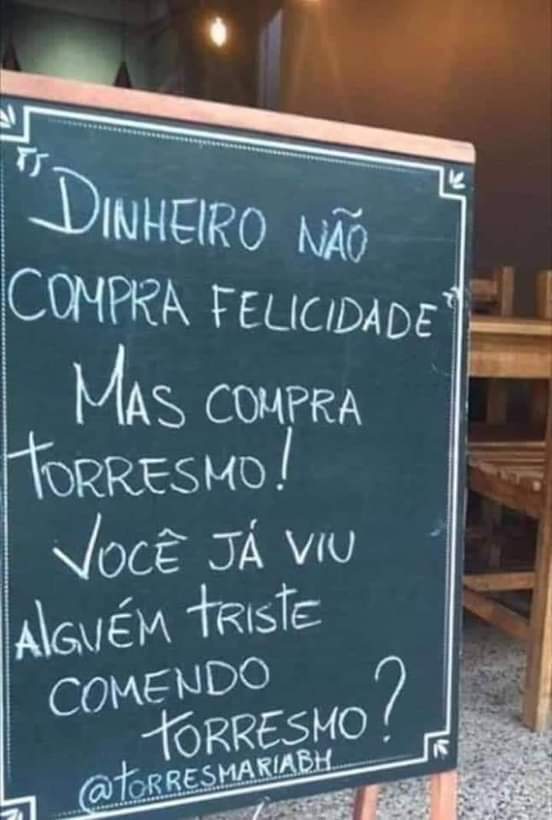 "DINHEIRO NÃO
COMPRA FELICIDADE"
MAS COMPRA
TORRESMO!
VOCÊ JÁ VIU
ALGUÉM TRISTE
COMENDO
TORRESMO?
@TORRESMARIABH